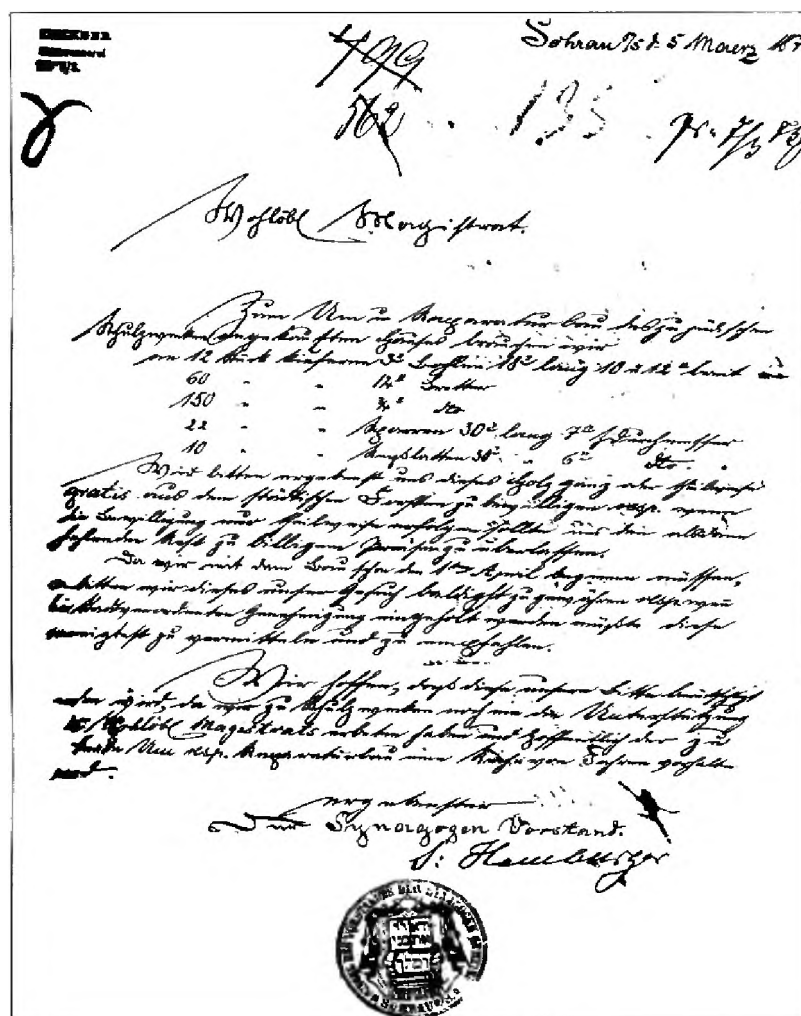 Sohrau O/S d. 5 Maerz 187
499
562 135 pr. 7/3 73
Wohllöbl Magistrat.
Zum Um u Reparatur bau des zu jüdischen
Schulzwecken angekauften Hauses brauchen wir
an 12 Stück kieferne 3" Bohlen 18' lang 10 a 12" breit
60 " " 1/2" Bretter
150 " " 3/4" dto
22 " " Sparren 30' lang 7" Durchmesser
10 " " Ringlatten 30' " 6" dto.
Wir bitten ergebenst uns dieses Holz ganz oder theilweise
gratis aus dem städtischen Forsten zu bewilligen resp. wenn
die Bewilligung nur theilweise erfolgen sollte, uns den alsdann
fehlenden Rest zu billigen Preisen zu überlassen.
Da wir mit dem Bau schon den 1ten April beginnen müssen,
bitten wir dieses unser Gesuch baldigst zu gewähren resp. wenn
Stadtverordneten Genehmigung eingeholt werden müßte diese
zu vermitteln und zu empfehlen.
Wir hoffen, daß diese unsere Bitte berücksichtigt
werden wird, da wir zu Schulzwecken noch nie die Unterstützung
Wohllöbl Magistrats erbeten haben und hoffentlich der zu
Um resp. Reparaturbau eine Reihe von Jahren vorhalten
wird.
ergebenster
Der Synagogen Vorstand.
S: Hamburger